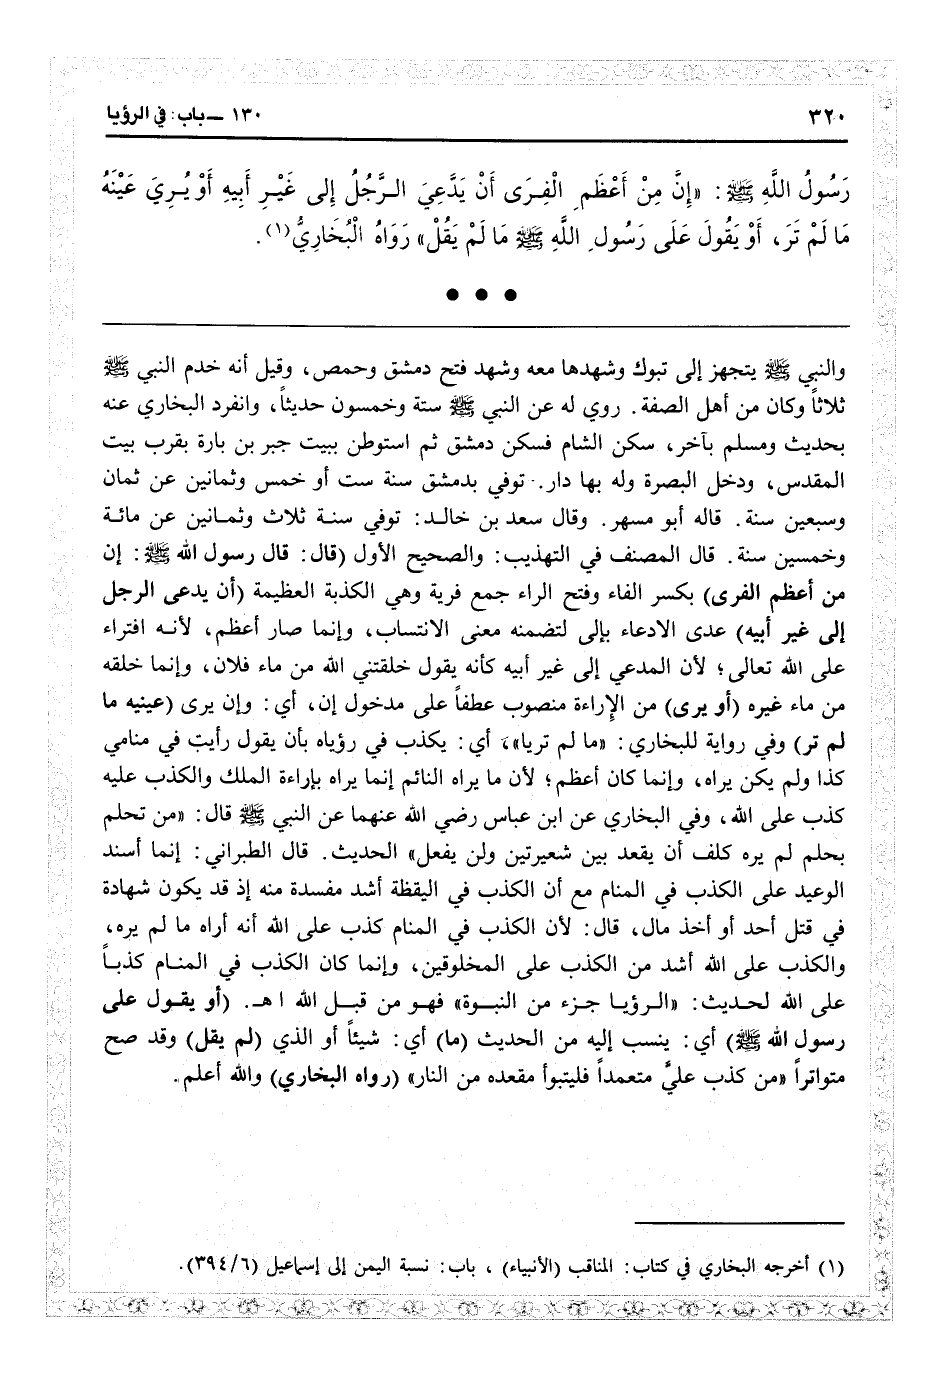 ٣٢٠
١٣٠ ــ باب: في الرؤيا
رَسُولُ اللَّهِ ﷺ: «إِنَّ مِنْ أَعْظَمِ الْفِرَى أَنْ يَدَّعِيَ الرَّجُلُ إِلى غَيْرِ أَبِيهِ أَوْ يُرِيَ عَيْنَهُ
مَا لَمْ تَرَ، أَوْ يَقُولَ عَلَى رَسُولِ اللَّهِ ﷺ مَا لَمْ يَقُلْ» رَوَاهُ الْبُخَارِيُّ(١).
● ● ●
والنبي ﷺ يتجهز إلى تبوك وشهدها معه وشهد فتح دمشق وحمص، وقيل أنه خدم النبي ﷺ
ثلاثاً وكان من أهل الصفة. روي له عن النبي ﷺ ستة وخمسون حديثاً، وانفرد البخاري عنه
بحديث ومسلم بآخر، سكن الشام فسكن دمشق ثم استوطن ببيت جبر بن بارة بقرب بيت
المقدس، ودخل البصرة وله بها دار. توفي بدمشق سنة ست أو خمس وثمانين عن ثمان
وسبعين سنة. قاله أبو مسهر. وقال سعد بن خالد: توفي سنة ثلاث وثمانين عن مائة
وخمسين سنة. قال المصنف في التهذيب: والصحيح الأول (قال: قال رسول الله ﷺ: إن
من أعظم الفرى) بكسر الفاء وفتح الراء جمع فرية وهي الكذبة العظيمة (أن يدعى الرجل
إلى غير أبيه) عدى الادعاء بإلى لتضمنه معنى الانتساب، وإنما صار أعظم، لأنه افتراء
على الله تعالى؛ لأن المدعي إلى غير أبيه كأنه يقول خلقتني الله من ماء فلان، وإنما خلقه
من ماء غيره (أو يرى) من الإراءة منصوب عطفاً على مدخول إن، أي: وإن يرى (عينيه ما
لم تر) وفي رواية للبخاري: «ما لم تريا»، أي: يكذب في رؤياه بأن يقول رأيت في منامي
كذا ولم يكن يراه، وإنما كان أعظم؛ لأن ما يراه النائم إنما يراه بإراءة الملك والكذب عليه
كذب على الله، وفي البخاري عن ابن عباس رضي الله عنهما عن النبي ﷺ قال: «من تحلم
بحلم لم يره كلف أن يقعد بين شعيرتين ولن يفعل» الحديث. قال الطبراني: إنما أسند
الوعيد على الكذب في المنام مع أن الكذب في اليقظة أشد مفسدة منه إذ قد يكون شهادة
في قتل أحد أو أخذ مال، قال: لأن الكذب في المنام كذب على الله أنه أراه ما لم يره،
والكذب على الله أشد من الكذب على المخلوقين، وإنما كان الكذب في المنام كذباً
على الله لحديث: «الرؤيا جزء من النبوة» فهو من قبل الله ا هـ. (أو يقول على
رسول الله ﷺ) أي: ينسب إليه من الحديث (ما) أي: شيئاً أو الذي (لم يقل) وقد صح
متواتراً «من كذب عليَّ متعمداً فليتبوأ مقعده من النار» (رواه البخاري) والله أعلم.
(١) أخرجه البخاري في كتاب: المناقب (الأنبياء) ، باب: نسبة اليمن إلى إسماعيل (٣٩٤/٦).